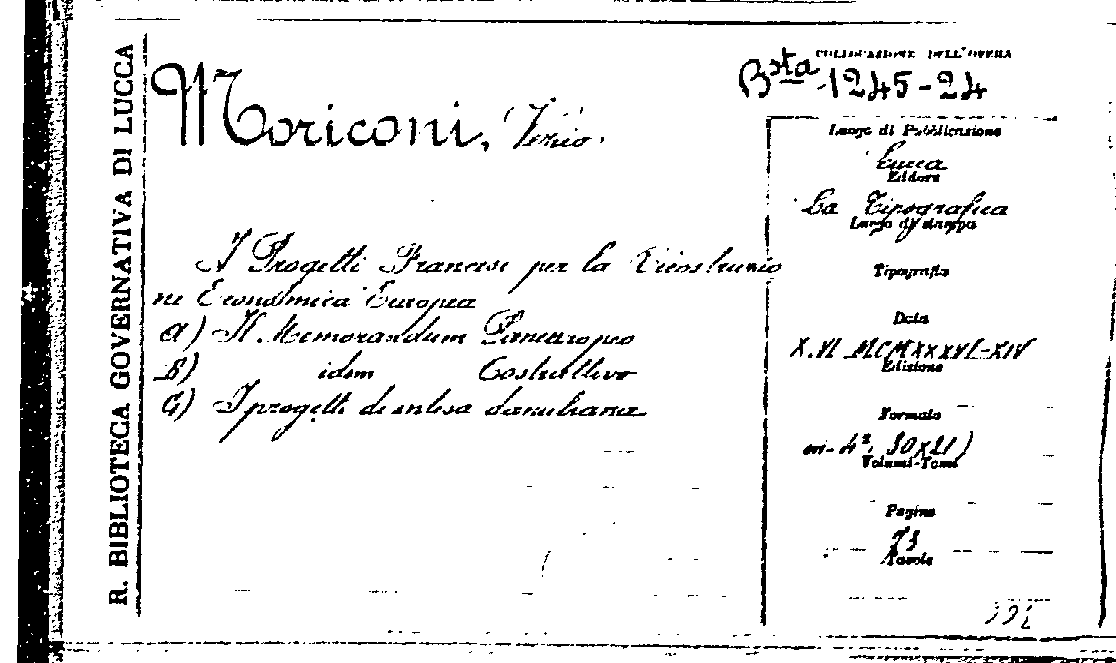 R. BIBLIOTECA GOVERNATIVA DI LUCCA
COLLOCAZIONE DELL'OPERA
Bsta 1245-24
Moriconi,
I Progetti Francesi per la Ricostruzio
ne Economica Europea
A) Il Memorandum Paneuropeo
B) idem Costruttivo
C) I progetti di intesa danubiana
Luogo di Pubblicazione
Lucca
Editore
La Tipografica
Luogo di stampa
Tipografia
Data
X.VI MCMXXXVI-XIV
Edizione
Formato
in-4°, 30x21)
Volumi-Tomi
Pagine
73
Tavole